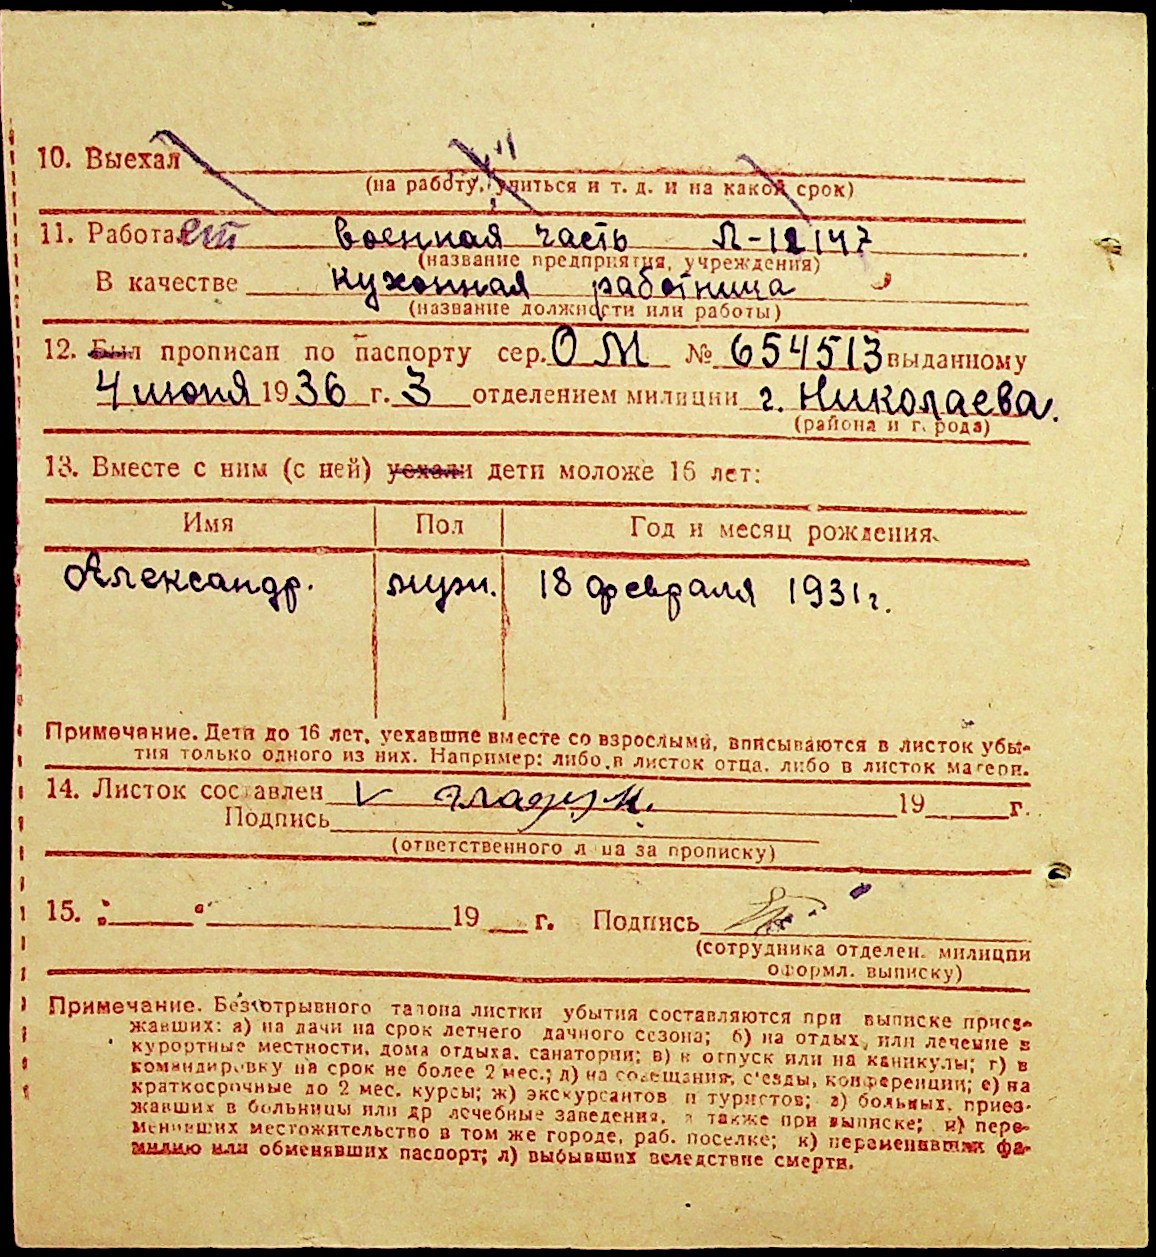 10. Выехал
(на работу, учиться и т. д. и на какой срок)
11. Работает военная часть Л-12147
(название предприятия, учреждения)
В качестве кухонная работница
(название должности или работы)
12. Был прописан по паспорту сер. ОМ № 654513 выданному
4 июня 1936 г. 3 отделением милиции г. Николаева.
(района и города)
13. Вместе с ним (с ней) уехали дети моложе 16 лет:
Имя Пол Год и месяц рождения
Александр. муж. 18 февраля 1931 г.
Примечание. Дети до 16 лет, уехавшие вместе со взрослыми, вписываются в листок убы-
тия только одного из них. Например: либо в листок отца, либо в листок матери.
14. Листок составлен 19 г.
Подпись
(ответственного лица за прописку)
15. 19 г. Подпись
(сотрудника отделен. милиции
оформл. выписку)
Примечание. Без отрывного талона листки убытия составляются при выписке приез-
жавших: а) на дачи на срок летнего дачного сезона; б) на отдых, или лечение в
курортные местности, дома отдыха, санатории; в) в отпуск или на каникулы; г) в
командировку на срок не более 2 мес.; д) на совещания, с'езды, конференции; е) на
краткосрочные до 2 мес. курсы; ж) экскурсантов и туристов; з) больных, приез-
жавших в больницы или др лечебные заведения, а также при выписке; и) пере-
менивших местожительство в том же городе, раб. поселке; к) переменивших фа-
милию или обменявших паспорт; л) выбывших вследствие смерти.